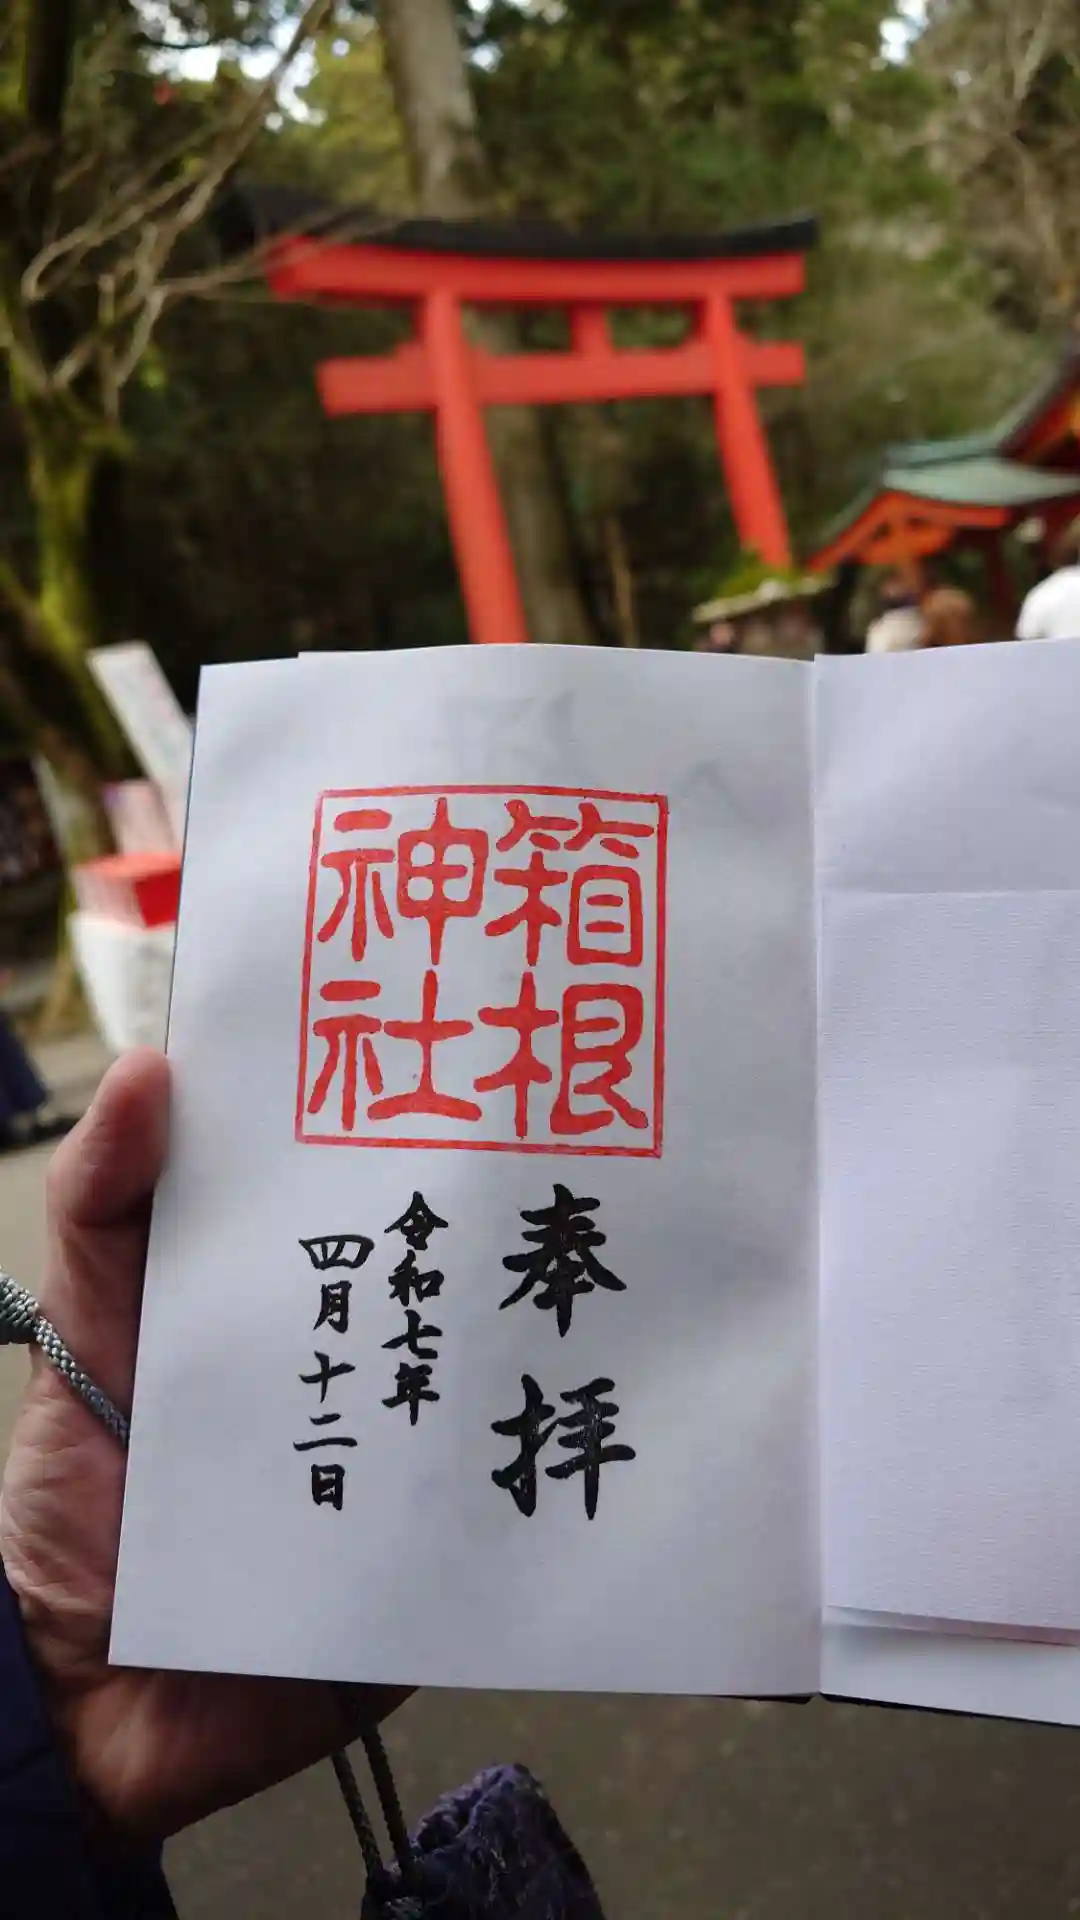 箱根
神社
奉拝
令和七年
四月十二日